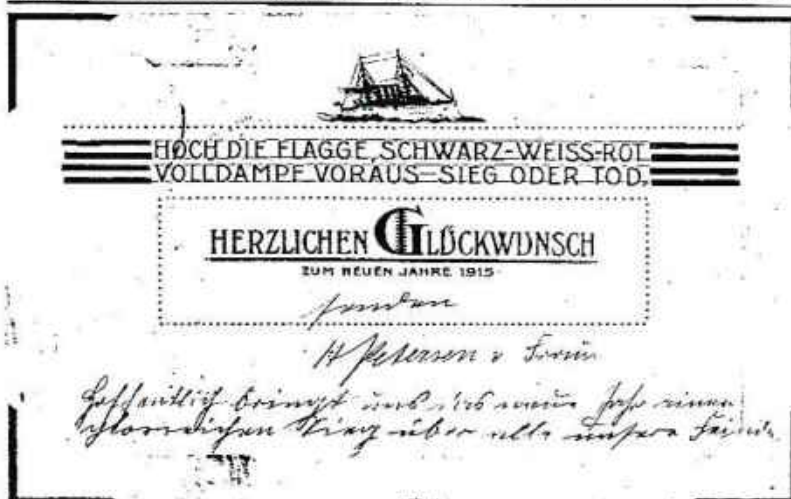 HOCH DIE FLAGGE, SCHWARZ-WEISS-ROT
VOLLDAMPF VORAUS–SIEG ODER TOD.
HERZLICHEN GLÜCKWUNSCH
ZUM NEUEN JAHRE 1915
senden
H Petersen u Frau
Hoffentlich bringt uns das neue Jahr einen
glorreichen Sieg über alle unsere Feinde